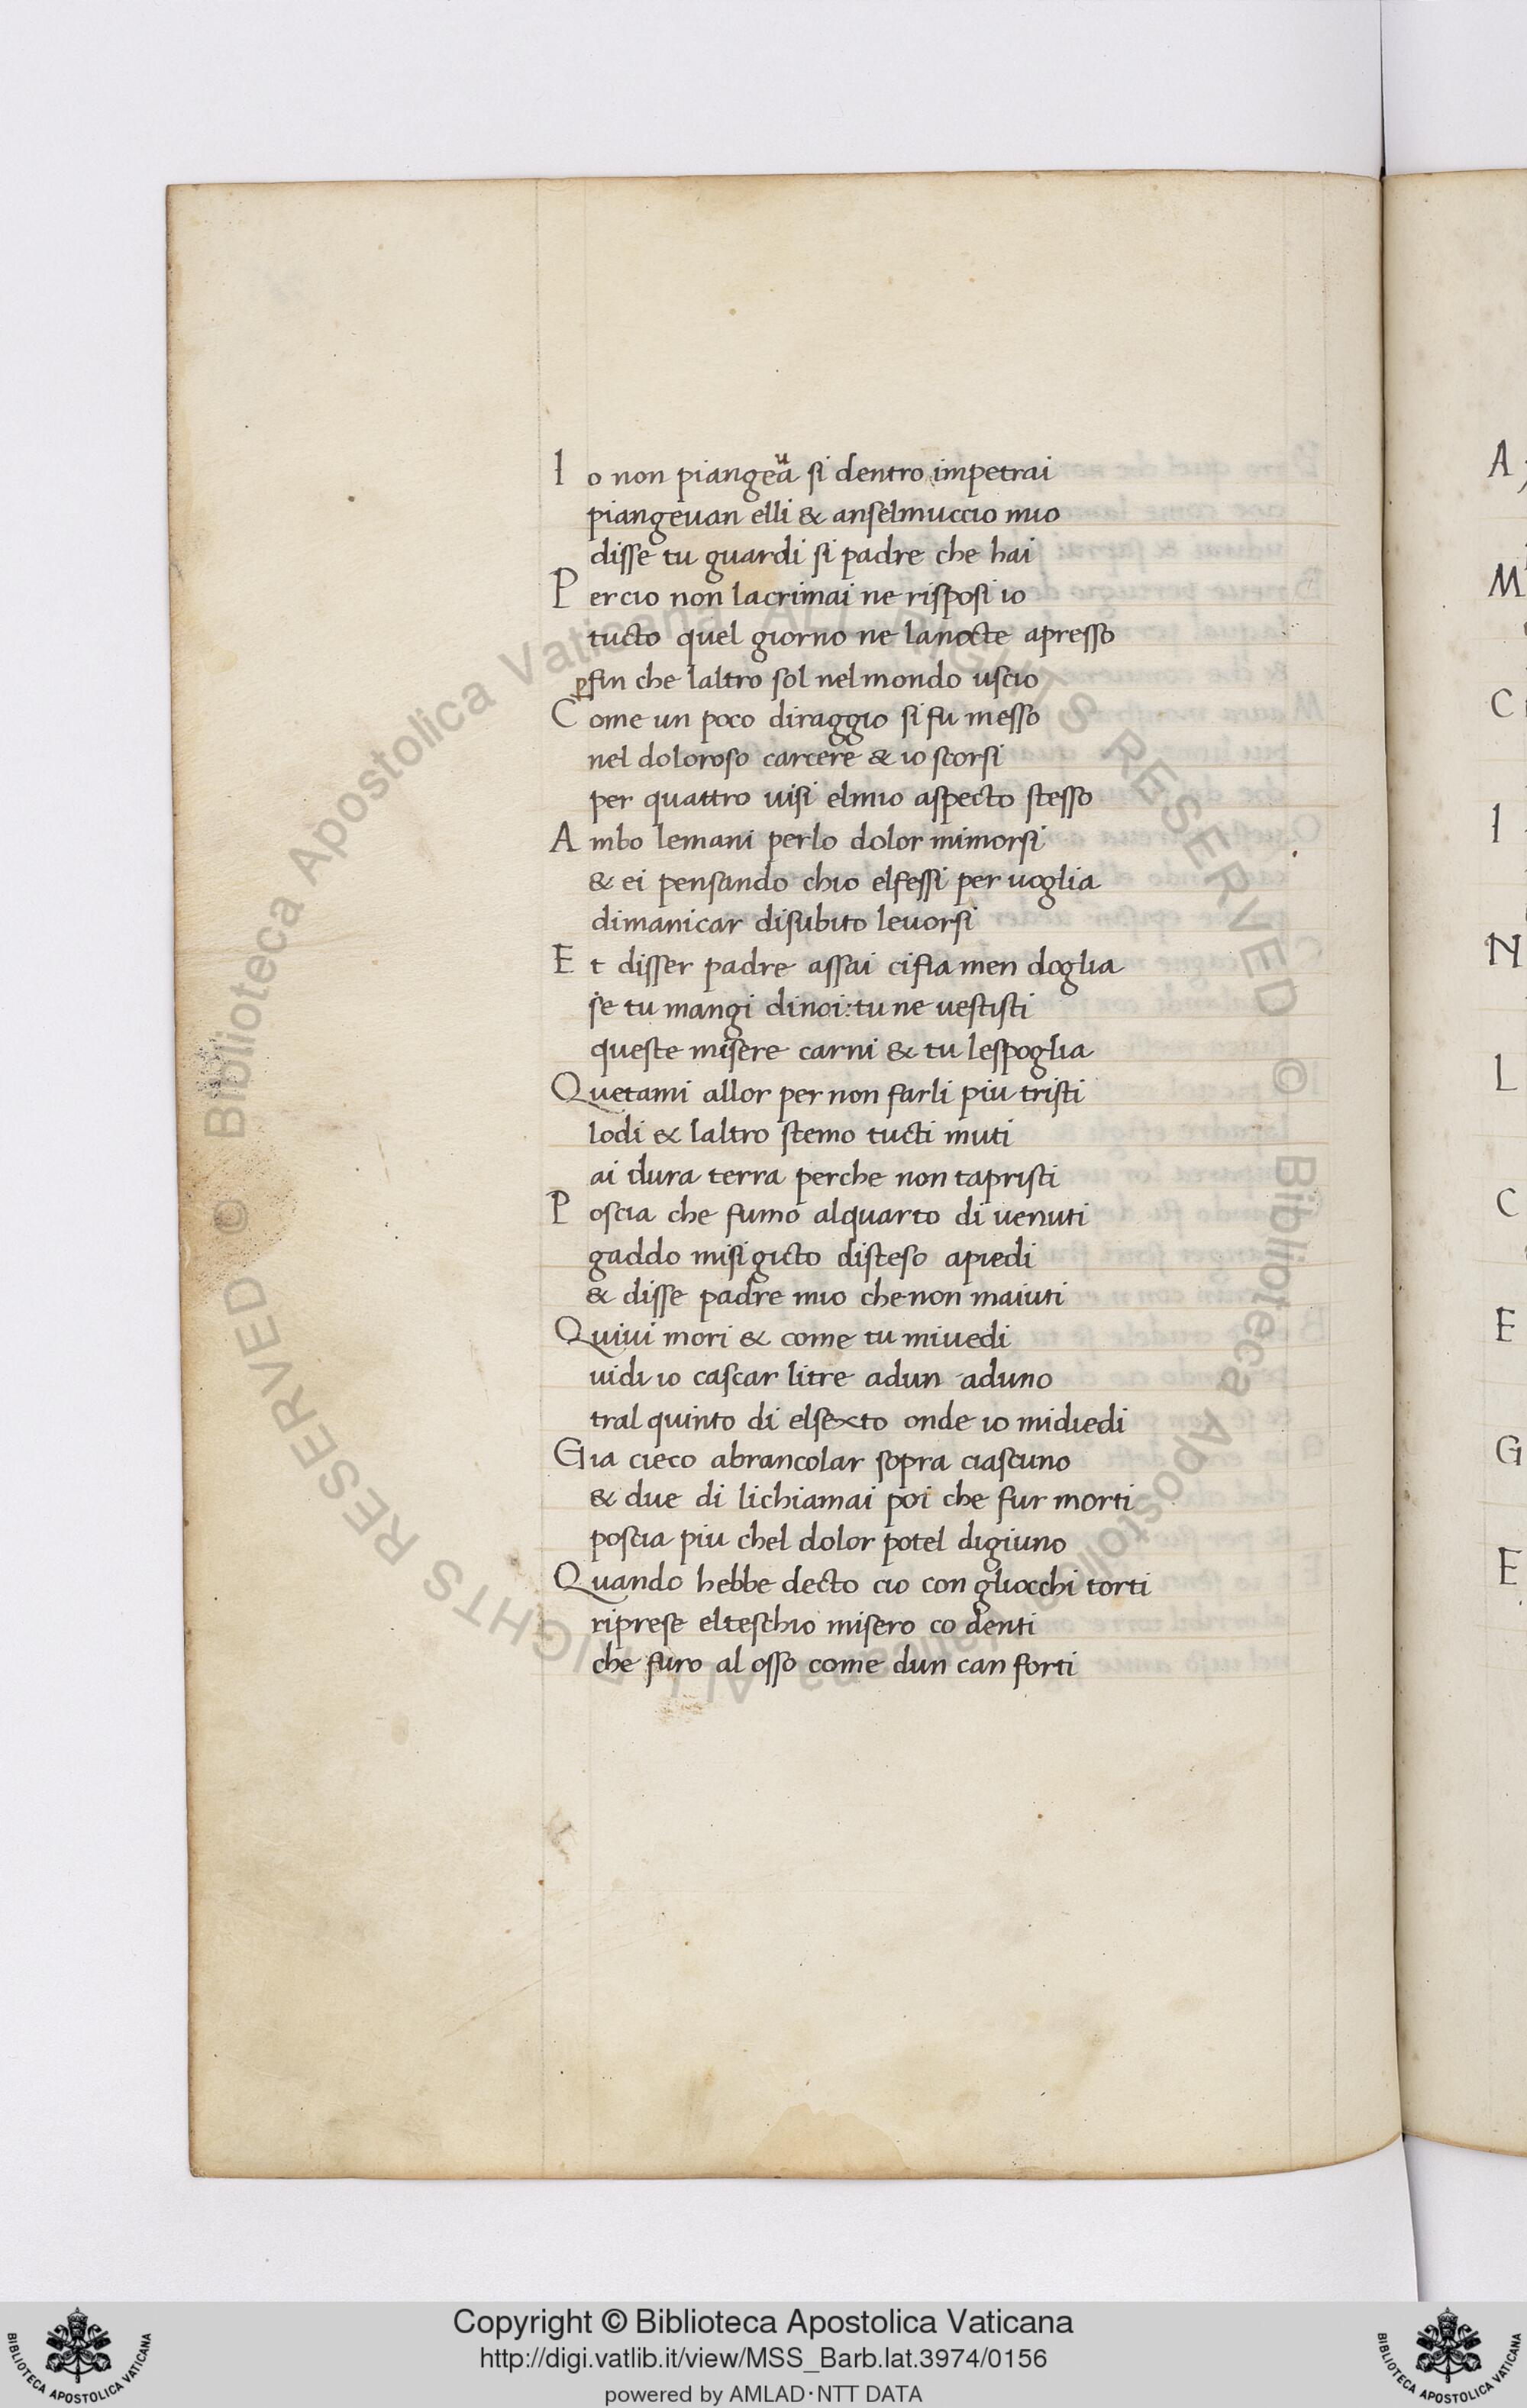 Io non piangeua si dentro impetrai
piangeuan elli & anselmuccio mio
disse tu guardi si padre che hai
Percio non lacrimai ne risposi io
tucto quel giorno ne lanocte apresso
fin che laltro sol nel mondo uscio
Come un poco diraggio si fu messo
nel doloroso carcere & io scorsi
per quattro uisi elmio aspecto stesso
Ambo lemani perlo dolor mimorsi
& ei pensando chio elfessi per uoglia
dimanicar disubito leuorsi
Et disser padre assai cifia men doglia
se tu mangi dinoi: tu ne uestisti
queste misere carni & tu lespoglia
Quetami allor per non farli piu tristi
lodi & laltro stemo tucti muti
ai dura terra perche non tapristi
Poscia che fumo alquarto di uenuti
gaddo misi gicto disteso apiedi
& disse padre mio che non maiuti
Quiui mori & come tu miuedi
uidi io cascar litre adun aduno
tral quinto di elsexto onde io midiedi
Gia cieco abrancolar sopra ciascuno
& due di lichiamai poi che fur morti
poscia piu chel dolor potel digiuno
Quando hebbe decto cio con gliocchi torti
riprese elteschio misero co denti
che furo al osso come dun can forti
A
M
C
I
N
L
C
E
G
E
© Biblioteca Apostolica Vaticana ALL RIGHTS RESERVED © Biblioteca Apostolica Vaticana ALL RIGHTS RESERVED
Copyright © Biblioteca Apostolica Vaticana
http://digi.vatlib.it/view/MSS_Barb.lat.3974/0156
powered by AMLAD·NTT DATA
BIBLIOTECA APOSTOLICA VATICANA
BIBLIOTECA APOSTOLICA VATICANA